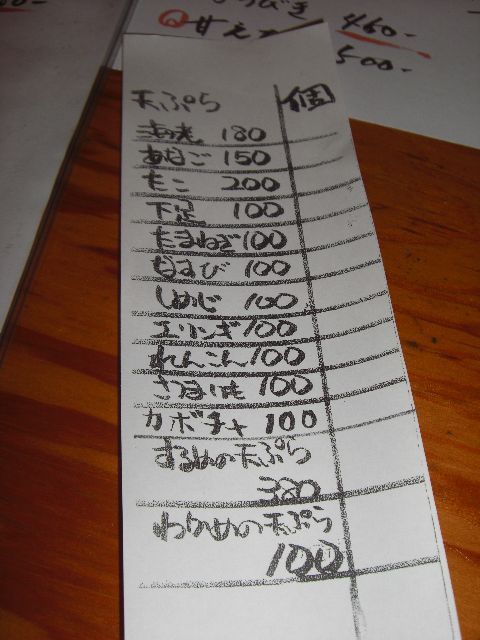 甘えび 460-
500-
天ぷら 個
海老 180
あなご 150
たこ 200
下足 100
たまねぎ 100
なすび 100
しめじ 100
エリンギ 100
れんこん 100
さつまいも 100
カボチャ 100
するめの天ぷら
380
わかめの天ぷら
100